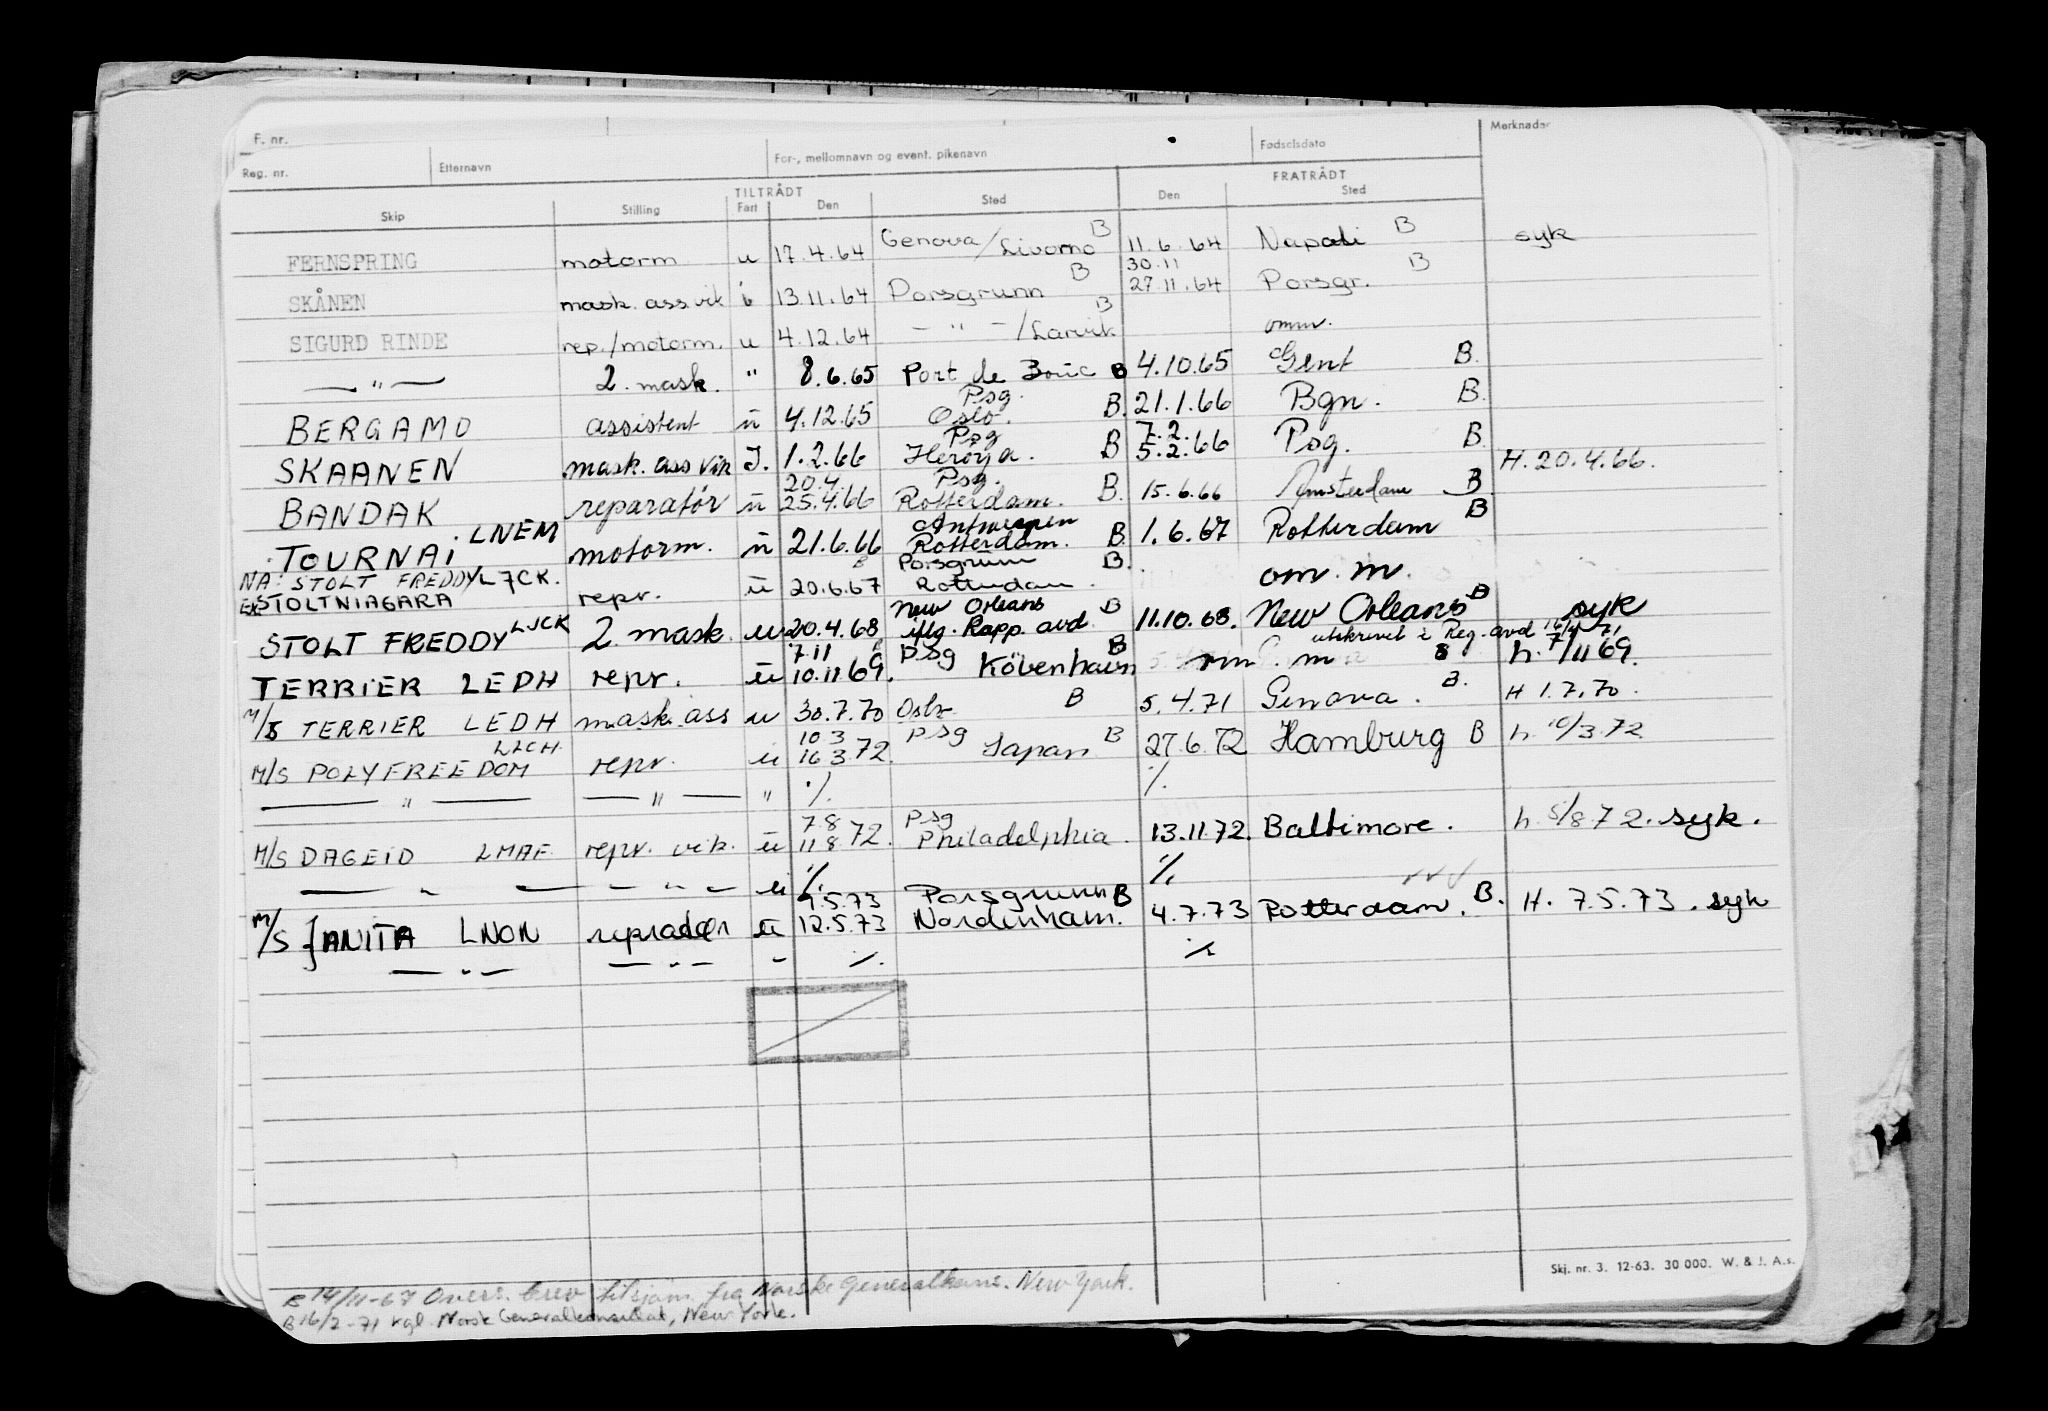 F. nr.
Reg. nr. Etternavn For-, mellomnavn og event. pikenavn Fødselsdato Merknader
TILTRÅDT FRATRÅDT
Skip Stilling Fart Den Sted Den Sted
FERNSPRING motorm u 17.4.64 Genova/Livorno B 11.6.64 Napoli B syk
30.11
SKÅNEN mask. ass. vik i 13.11.64 Porsgrunn B 27.11.64 Porsgr. B
SIGURD RINDE rep./motorm. u 4.12.64 — " — /Larvik B omm.
— " — 2. mask. " 8.6.65 Port de Bouc B 4.10.65 Gent B.
Psg.
BERGAMO assistent u 4.12.65 Oslo. B. 21.1.66 Bgn. B.
Psg 7.2.
SKAANEN mask. ass vik I. 1.2.66 Herøya. B 5.2.66 Psg. B.
20.4. Psg. H. 20.4.66.
BANDAK reparatør u 25.4.66 Rotterdam. B. 15.6.66 Amsterdam B
LNEM Antwerpen
TOURNAI motorm. u 21.6.66 Rotterdam. B. 1.6.67 Rotterdam B
NA: STOLT FREDDY LJCK. Porsgrunn B.
EX STOLTNIAGARA repr. u 20.6.67 Rotterdam. om. m.
New Orleans B
STOLT FREDDY LJCK 2. mask. u 20.4.68 iflg. Rapp. avd. 11.10.68. New Orleans B syk
utskrevet i Reg. avd 16/4 71
7.11 Psg B
TERRIER LEDH repr. u 10.11.69. København om. m B h. 7/11 69.
M/S TERRIER LEDH mask. ass u 30.7.70 Oslo B 5.4.71 Genova. B. H 1.7.70.
10 3 psg
M/S POLYFREEDOM LLCH. repr. u 16 3 72. Japan B 27.6.72 Hamburg B h. 10/3.72
— " — — " — " ./. ./.
7.8 Psg
M/S DAGEID LMAF. repr. vik. u 11 8 72. Philadelphia. 13.11.72. Baltimore. h. 5/8 72. syk.
— " — — " — u ./. ./.
9.5.73 Porsgrunn B
M/S JANITA LNON repratør u 12.5.73 Nordenham. 4.7.73 Rotterdam. B. H. 7.5.73. syk
— " — — " — " ./. ./.
Skj. nr. 3. 12-63. 30 000. W. & J. A.s.
B 14/11-67 Overs. brev til sjøm. fra Norske Generalkons. New York.
B 16/2-71 Kgl. Norsk Generalkonsulat, New York.